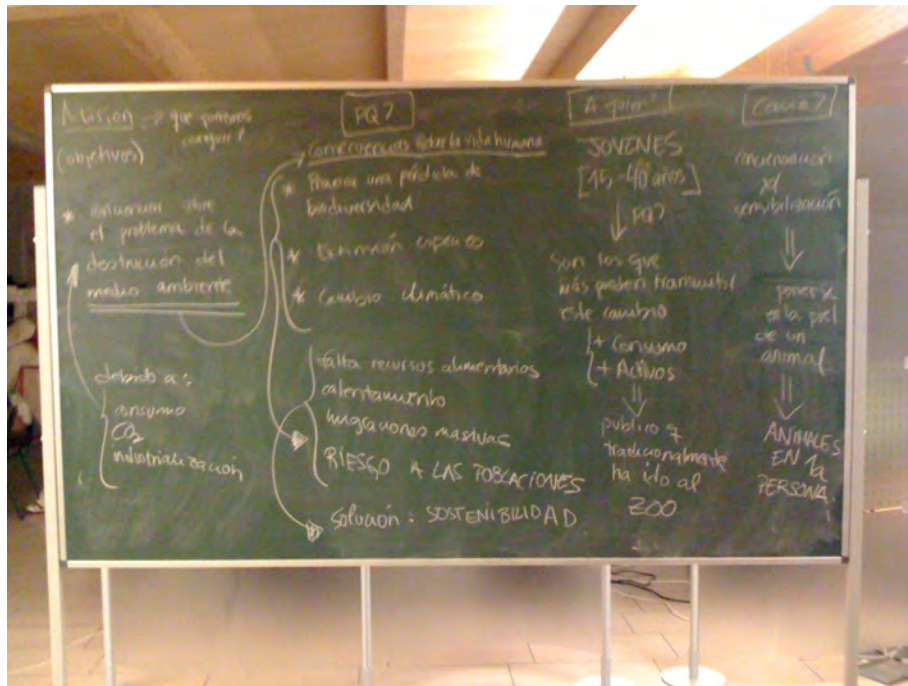 Misión → que queremos
conseguir?
(objetivos)
* concienciar sobre
el problema de la
destrucción del
medio ambiente
debido a:
consumo
CO2
industrialización
PQ?
Consecuencias sobre la vida humana
* Provoca una pérdida de
biodiversidad
* Extinción especies
* Cambio climático
falta recursos alimentarios
calentamiento
migraciones masivas
RIESGO A LAS POBLACIONES
Solución: SOSTENIBILIDAD
A quien?
JOVENES
[15-40 años]
↓ PQ?
son los que
más pueden transmitir
este cambio
+ Consumo
+ Activos
publico q
tradicionalmente
ha ido al
ZOO
Como?
concienciación
y/
sensibilización
ponerse
en la piel
de un
animal
ANIMALES
EN 1a
PERSONA